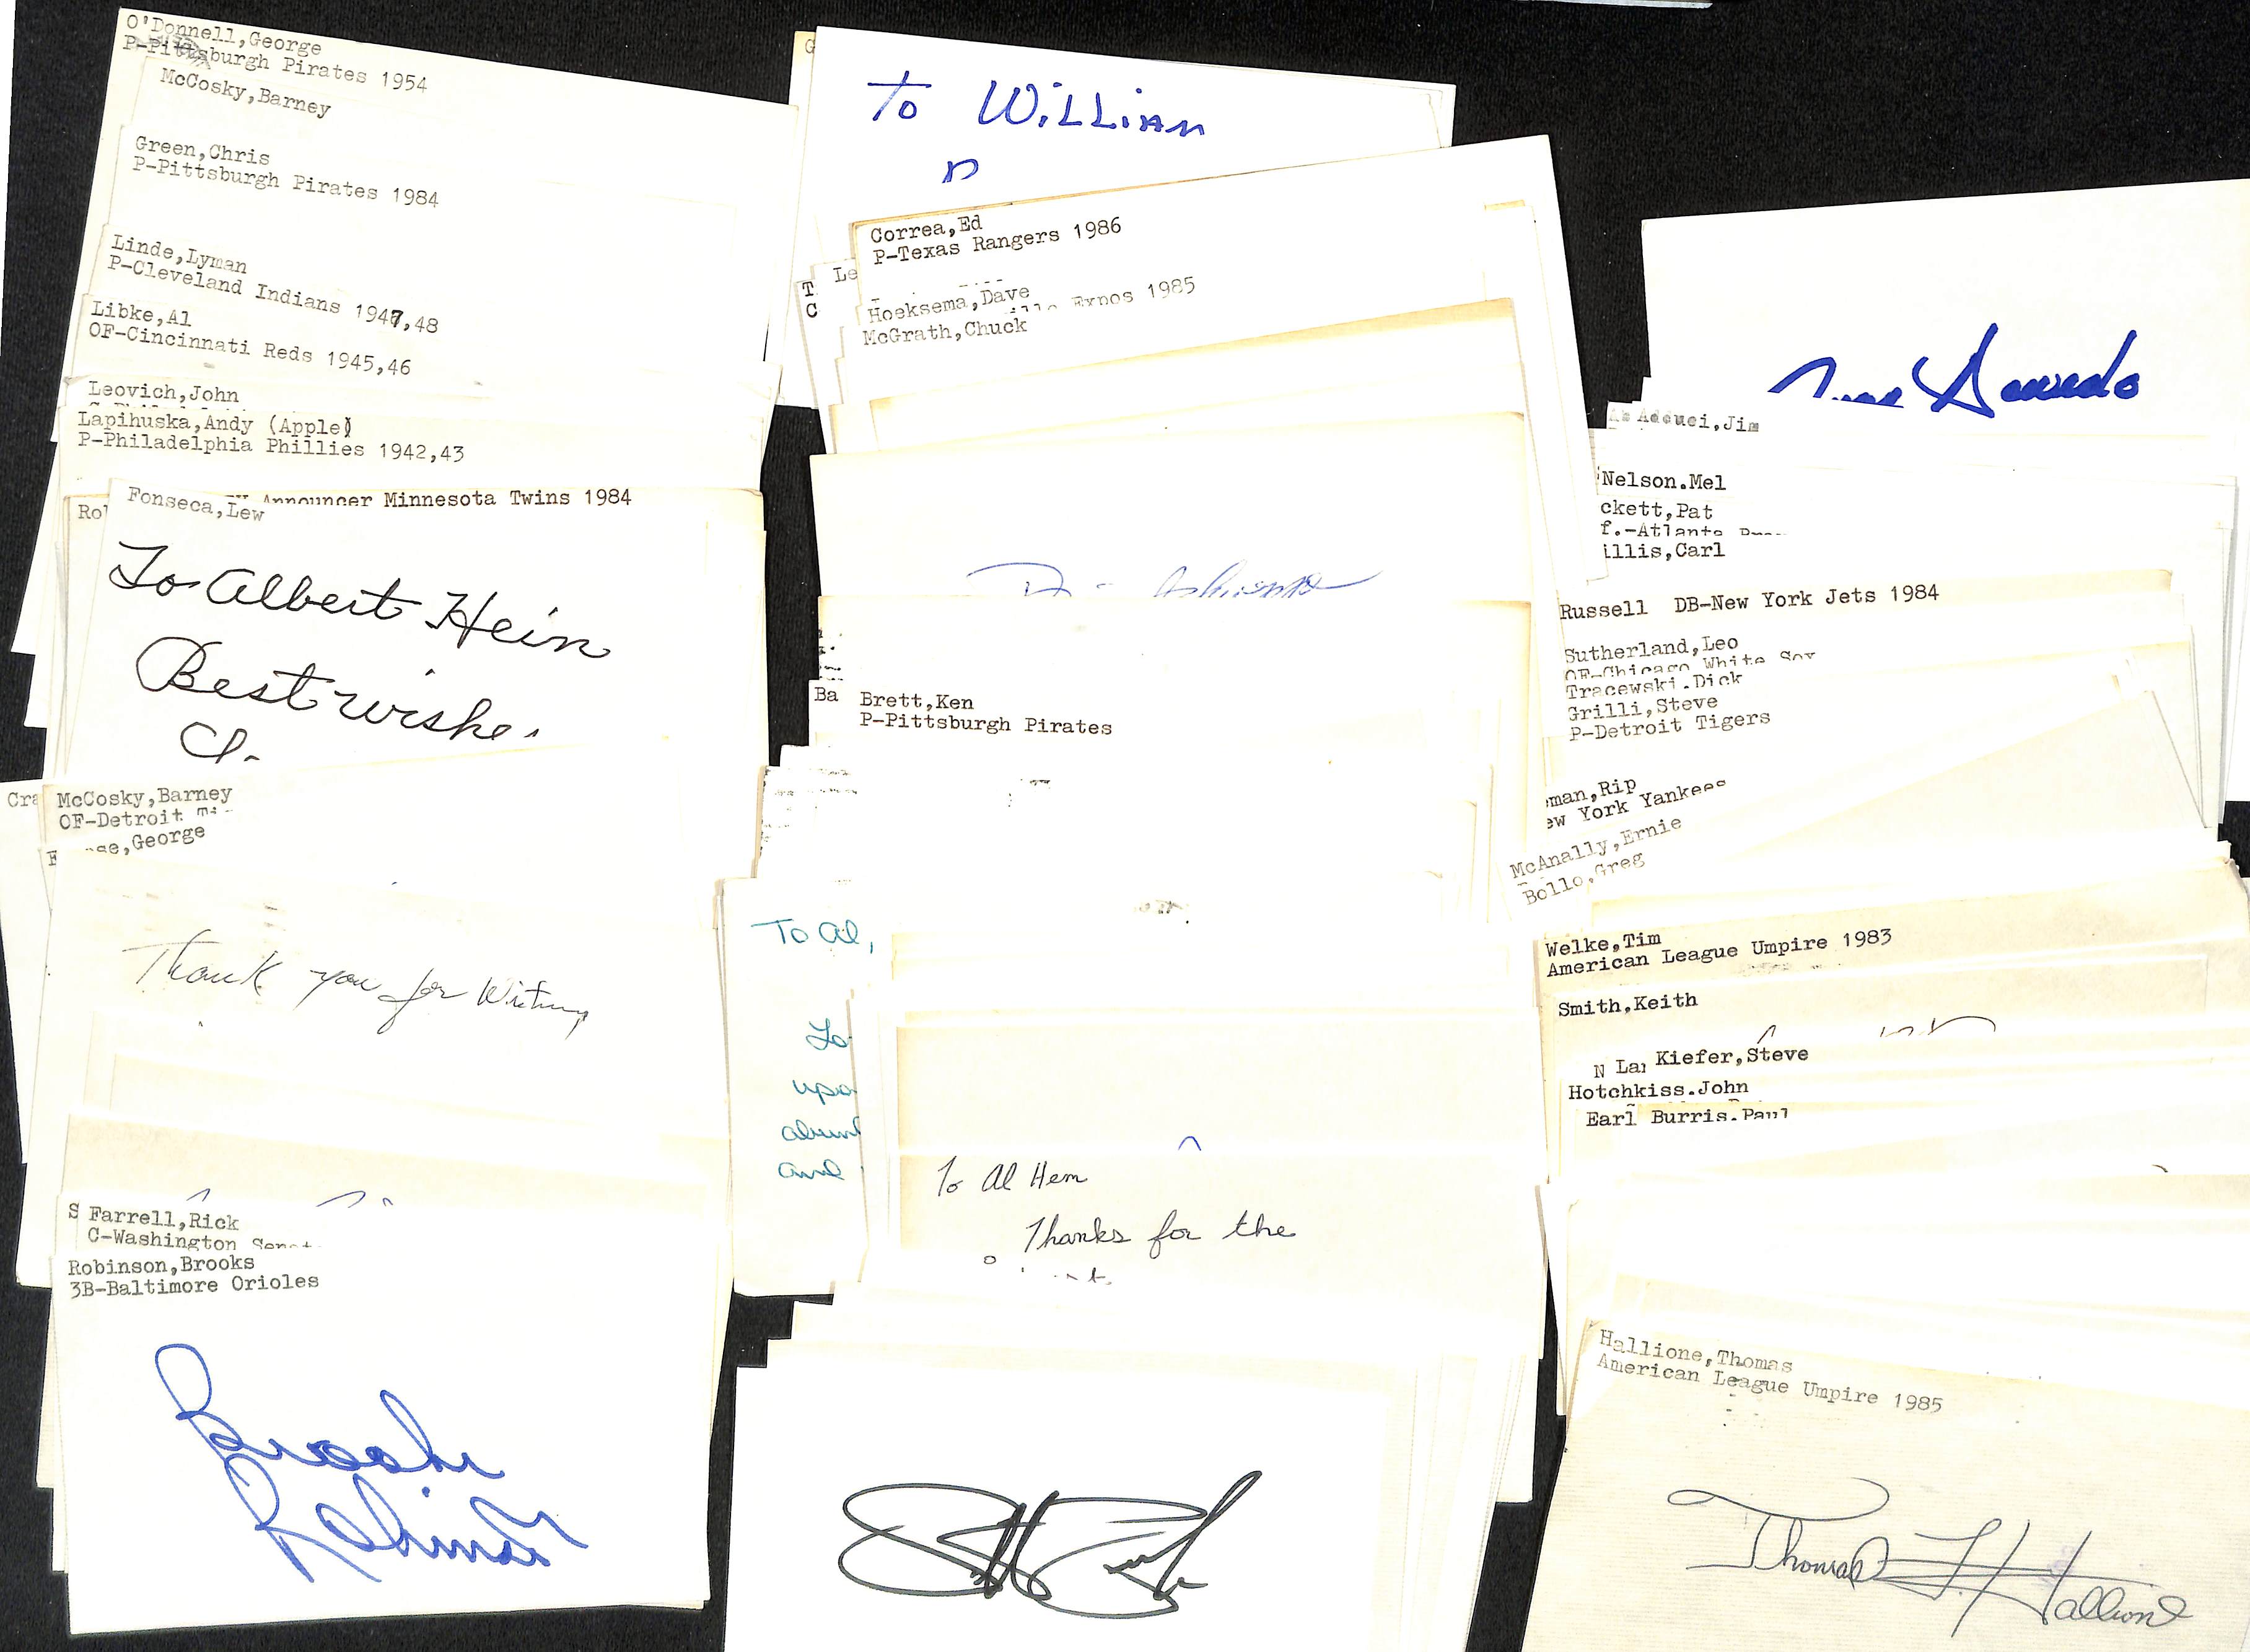 O'Donnell,George
P-Pittsburgh Pirates 1954
McCosky,Barney
Green,Chris
P-Pittsburgh Pirates 1984
Linde,Lyman
P-Cleveland Indians 1947,48
Libke,Al
OF-Cincinnati Reds 1945,46
Leovich,John
Lapihuska,Andy (Apple)
P-Philadelphia Phillies 1942,43
Announcer Minnesota Twins 1984
Fonseca,Lew
Ro
To Albert Hein
Best wishe
Cra
McCosky,Barney
OF-Detroit
se,George
Thank you for Writing
S Farrell,Rick
C-Washington
Robinson,Brooks
3B-Baltimore Orioles
Brooks
Robinson
G
To William
Correa,Ed
P-Texas Rangers 1986
Le
T
C
Hoeksema,Dave
Expos 1985
McGrath,Chuck
Ba
Brett,Ken
P-Pittsburgh Pirates
To Al,
To
upo
and
To Al Hein
Thanks for the
Adduci,Jim
Nelson.Mel
ckett,Pat
f.-Atlanta
illis,Carl
Russell DB-New York Jets 1984
Sutherland,Leo
OF-Chicago White Sox
Tracewski.Dick
Grilli,Steve
P-Detroit Tigers
man,Rip
ew York Yankees
McAnally,Ernie
Bollo,Greg
Welke,Tim
American League Umpire 1983
Smith,Keith
N La
Kiefer,Steve
Hotchkiss.John
Earl
Burris.Paul
Hallione,Thomas
American League Umpire 1985
Thomas F. Hallion